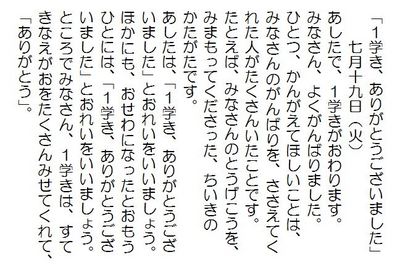 「１学き、ありがとうございました」
七月十九日（火）
あしたで、１学きがおわります。
みなさん、よくがんばりました。
ひとつ、かんがえてほしいことは、
みなさんのがんばりを、ささえてく
れた人がたくさんいたことです。
たとえば、みなさんのとうげこうを、
みまもってくださった、ちいきの
かたがたです。
あしたは、「１学き、ありがとうござ
いました」とおれいをいいましょう。
ほかにも、おせわになったとおもう
ひとには、「１学き、ありがとうござ
いました」とおれいをいいましょう。
ところでみなさん、１学きは、すて
きなえがおをたくさんみせてくれて、
「ありがとう」。